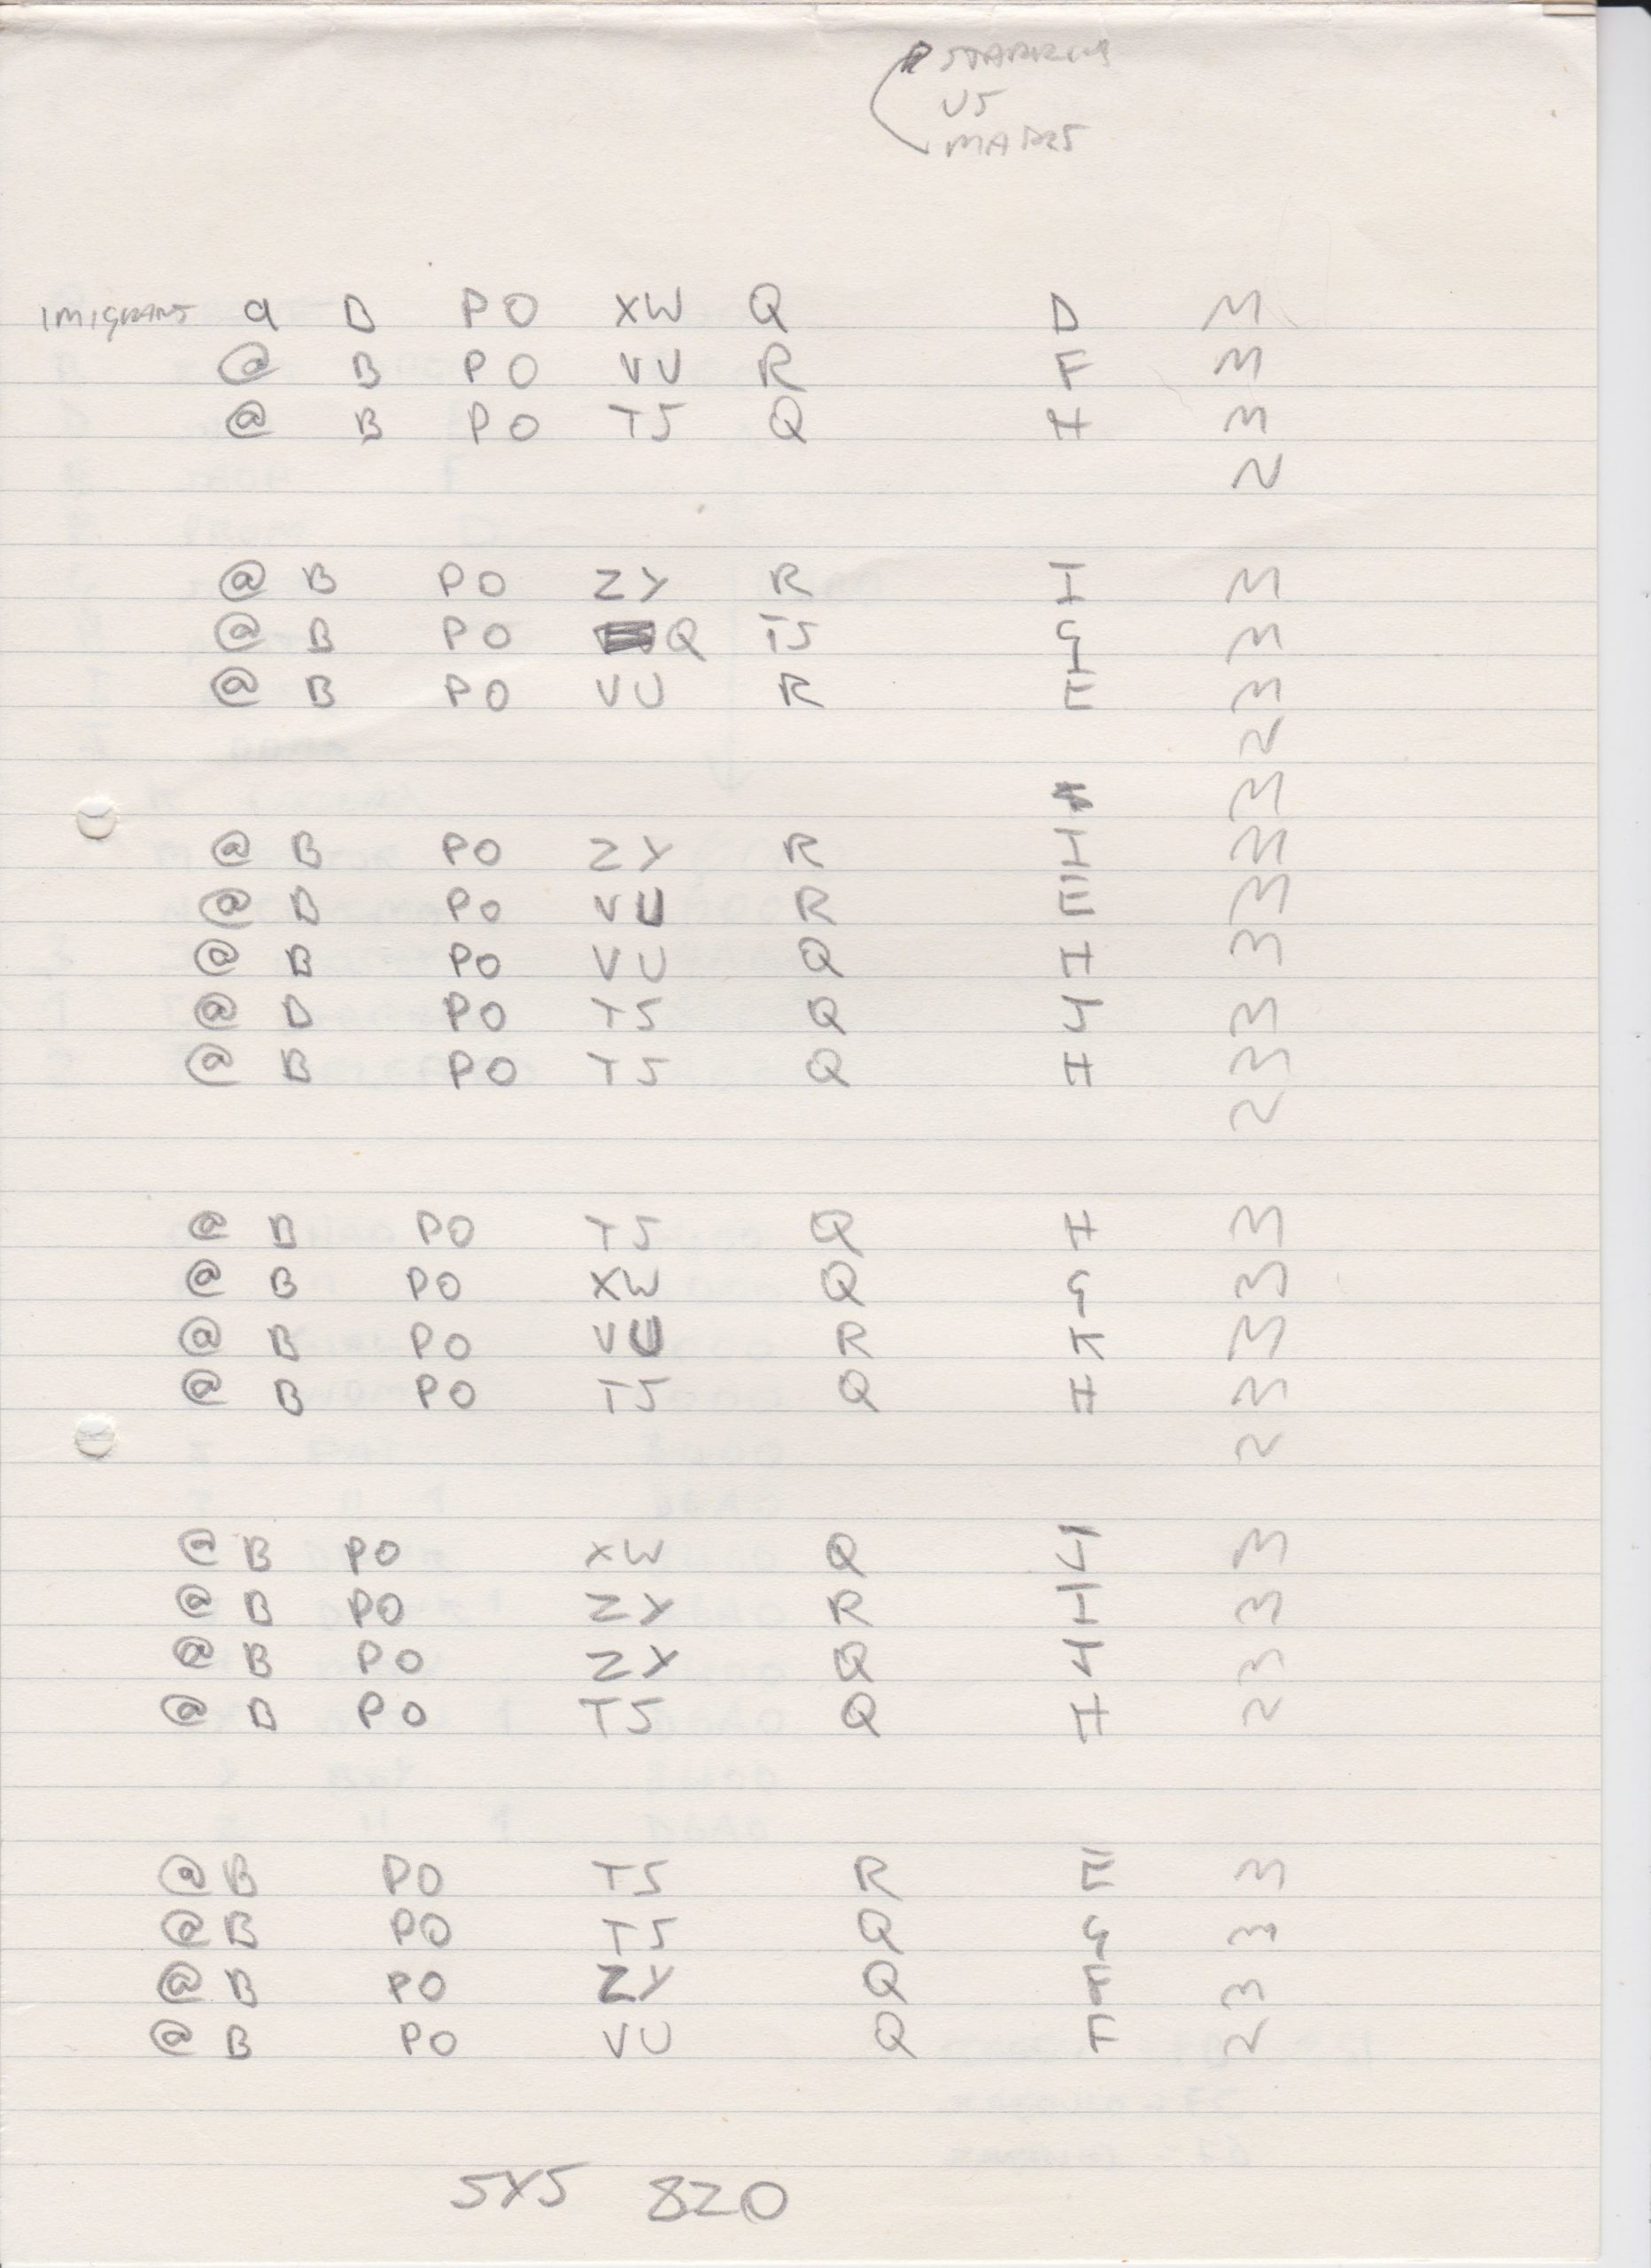 VS
MARS
@ B PO XW Q D M
@ B PO VU R F M
@ B PO TS Q H M
N
@ B PO ZY R I M
@ B PO Q TS G M
@ B PO VU R E M
N
M
@ B PO ZY R I M
@ B PO VU R E M
@ B PO VU Q H M
@ B PO TS Q J M
@ B PO TS Q H M
N
@ B PO TS Q H M
@ B PO XW Q G M
@ B PO VU R K M
@ B PO TS Q H M
N
@ B PO XW Q J M
@ B PO ZY R I M
@ B PO ZY Q J M
@ B PO TS Q H N
@ B PO TS R E M
@ B PO TS Q G M
@ B PO ZY Q F M
@ B PO VU Q F N
5Y5 820